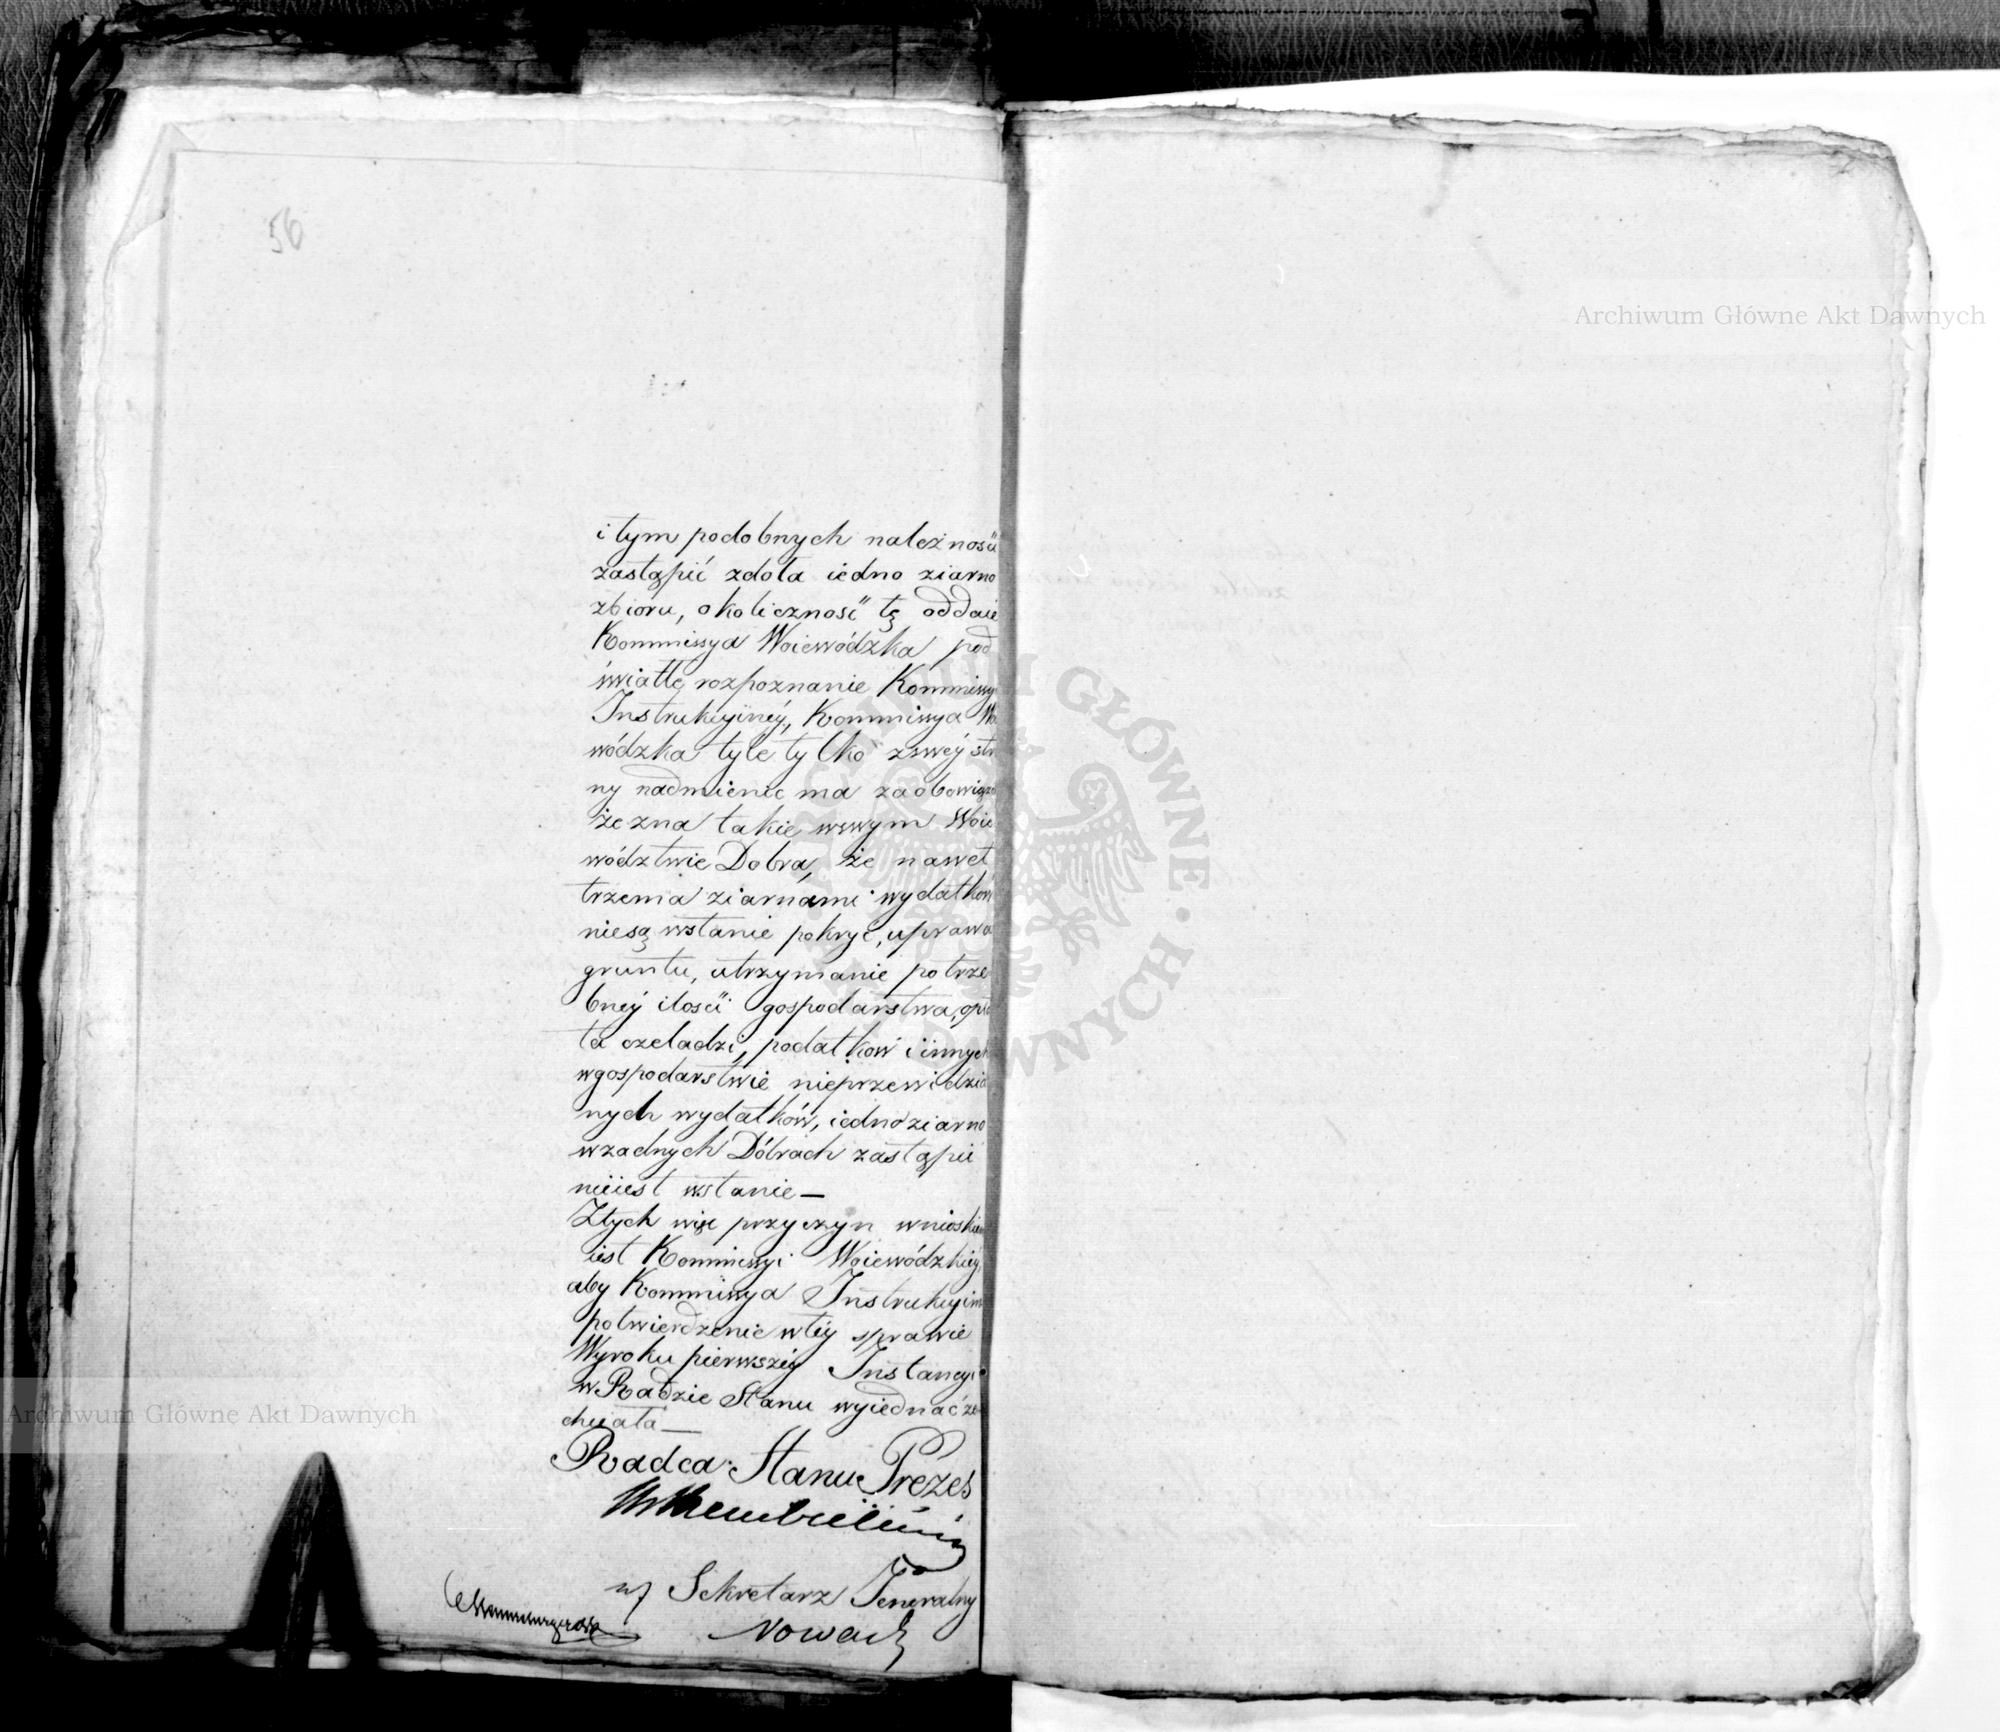 56
i tym podobnych należnosći
zastąpić zdoła iedno ziarno
zbioru, okoliczność tę oddaie
Kommissya Woiewódzka pod
światłe rozpoznanie Kommissyi
Instrukcyiney, Kommissya Wo
wódzka tyle tylko zswey stro
ny nadmienić ma za obowiązek
że zna takie wswym Woie
wództwie Dobra, że nawet
trzema ziarnami wydatków
niesą wstanie pokryć, uprawa
gruntu, utrzymanie potrze
bney ilości gospodarstwa, opła
ta czeladzi, podatków i innych
wgospodarstwie nieprzewidzia
nych wydatków, iedno ziarno
wzadnych Dobrach zastąpić
nieiest wstanie —
Ztych więc przyczyn wnioskiem
iest Kommissyi Woiewódzkiey,
aby Kommissya Instrukcyina
potwierdzenie wtey sprawie
Wyroku pierwszey Instancyi
w Radzie Stanu wyiednać ze
chciała —
Radca Stanu Prezes
Sekretarz Jeneralny
Nowack
Archiwum Główne Akt Dawnych
Archiwum Główne Akt Dawnych